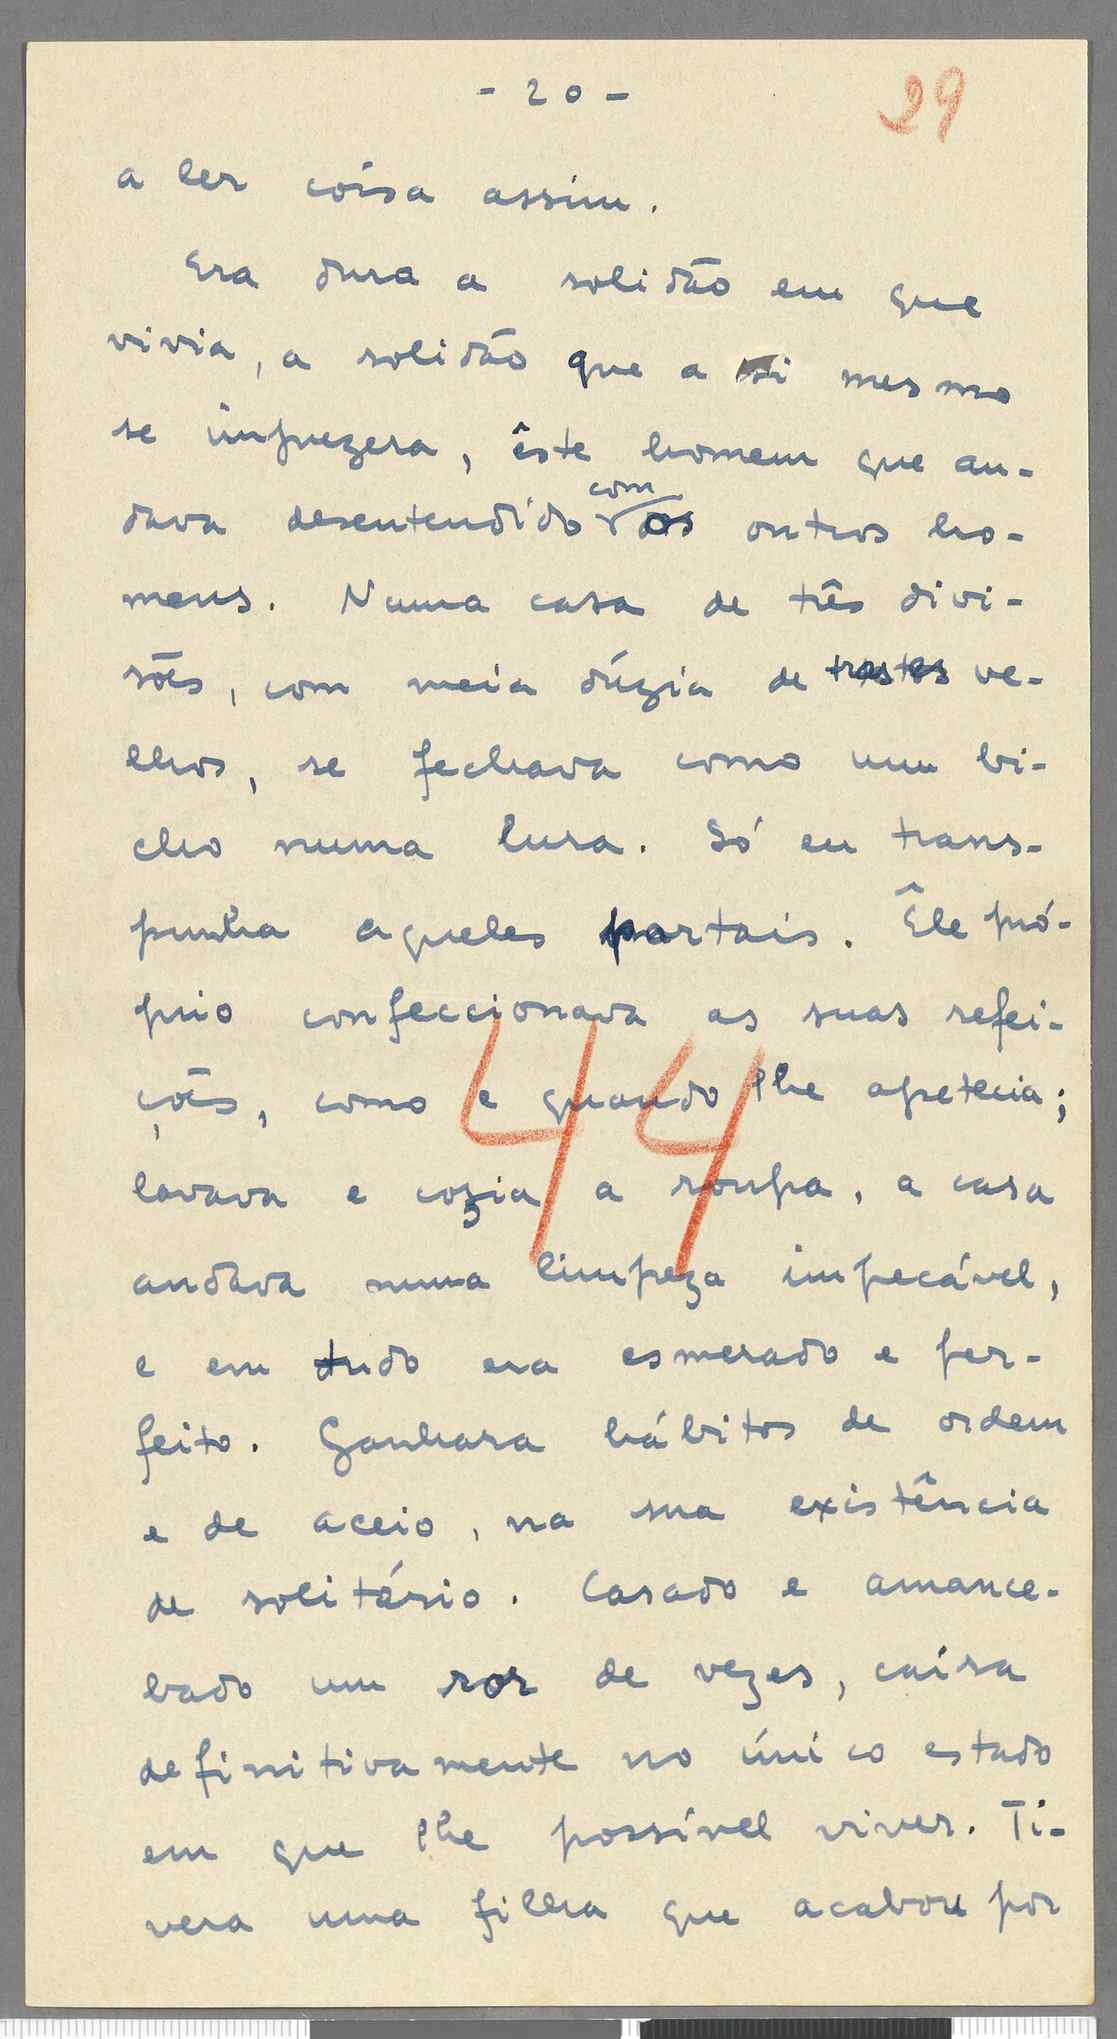 - 20 -
29
a ler coisa assim.
Era dura a solidão em que
vivia, a solidão que a si mesmo
se impuzera, êste homem que an-
dava desentendido com os outros ho-
mens. Numa casa de três divi-
sões, com meia dúzia de trastes ve-
lhos, se fechava como um bi-
cho numa lura. Só eu trans-
punha aqueles portais. Êle pró-
prio confeccionava as suas refei-
ções, como e quando lhe apetecia;
lavava e cozia a roupa, a casa
andava numa limpeza impecável,
e em tudo era esmerado e per-
feito. Ganhara hábitos de ordem
e de aceio, na sua existência
de solitário. Casado e amance-
bado um ror de vezes, caíra
definitivamente no único estado
em que lhe possível viver. Ti-
vera uma filha que acabou por
44